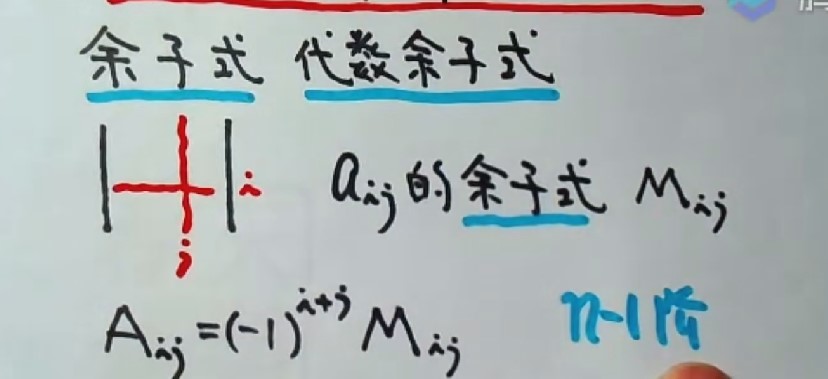 余子式 代数余子式
i a_{ij}的余子式 M_{ij}
j
A_{ij}=(-1)^{i+j}M_{ij} n-1阶